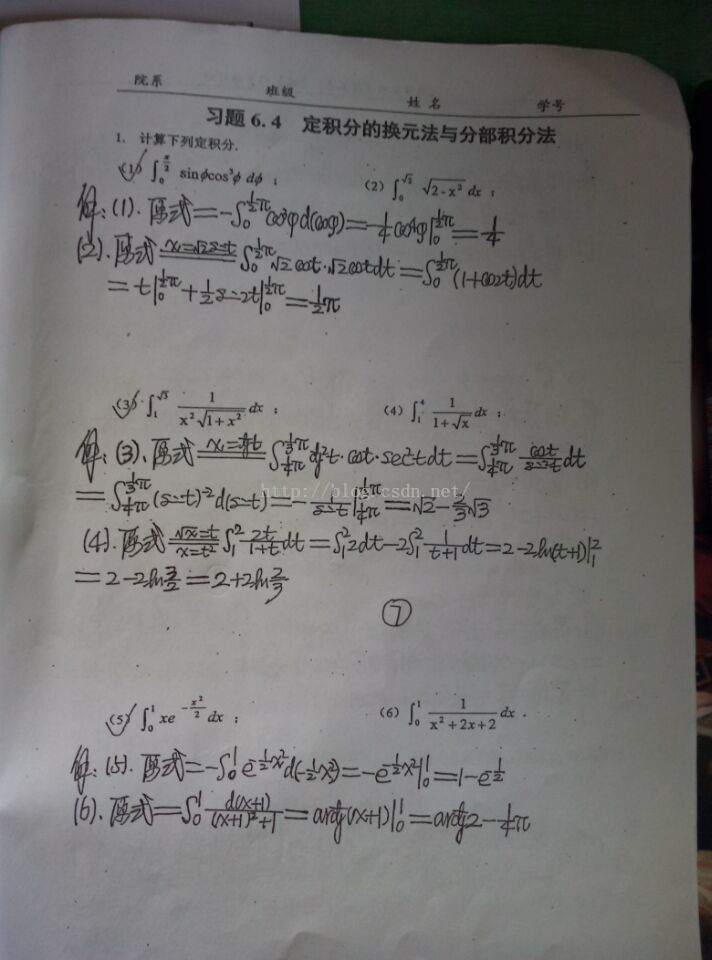 院系 班级 姓名 学号
习题 6.4 定积分的换元法与分部积分法
1. 计算下列定积分.
(1) ∫₀^{π/2} sinφcos³φ dφ ; (2) ∫₀^{√2} √(2-x²) dx ;
解:(1). 原式=-∫₀^{½π} cos³φd(cosφ)=-¼cos⁴φ|₀^{½π}=¼
(2). 原式 x=√2sint ∫₀^{½π} √2cost·√2costdt=∫₀^{½π}(1+cos2t)dt
=t|₀^{½π}+½sin2t|₀^{½π}=½π
(3) ∫₁^{√3} 1/(x²√(1+x²)) dx ; (4) ∫₁⁴ 1/(1+√x) dx ;
解:(3). 原式 x=tgt ∫_{¼π}^{⅓π} ctg²t·cost·sec²tdt=∫_{¼π}^{⅓π} cost/sin²t dt
=∫_{¼π}^{⅓π}(sint)⁻²d(sint)=-1/sint|_{¼π}^{⅓π}=√2-⅔√3
http://blog.csdn.net/
(4). 原式 √x=t x=t² ∫₁² 2t/(1+t) dt=∫₁²2dt-2∫₁² 1/(t+1) dt=2-2ln(t+1)|₁²
=2-2ln3/2=2+2ln2/3
⑦
(5) ∫₀¹ xe^{-x²/2} dx ; (6) ∫₀¹ 1/(x²+2x+2) dx .
解:(5). 原式=-∫₀¹e^{-½x²}d(-½x²)=-e^{-½x²}|₀¹=1-e^{-½}
(6). 原式=∫₀¹ d(x+1)/((x+1)²+1)=arctg(x+1)|₀¹=arctg2-¼π